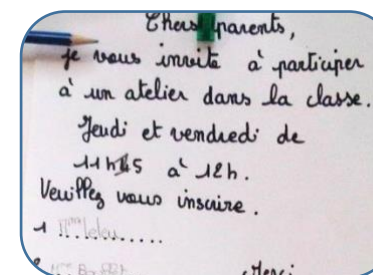 Chers parents,
je vous invite à participer
à un atelier dans la classe.
Jeudi et vendredi de
11h45 à 12h.
Veuillez vous inscrire.
1 Mme ..........
Merci